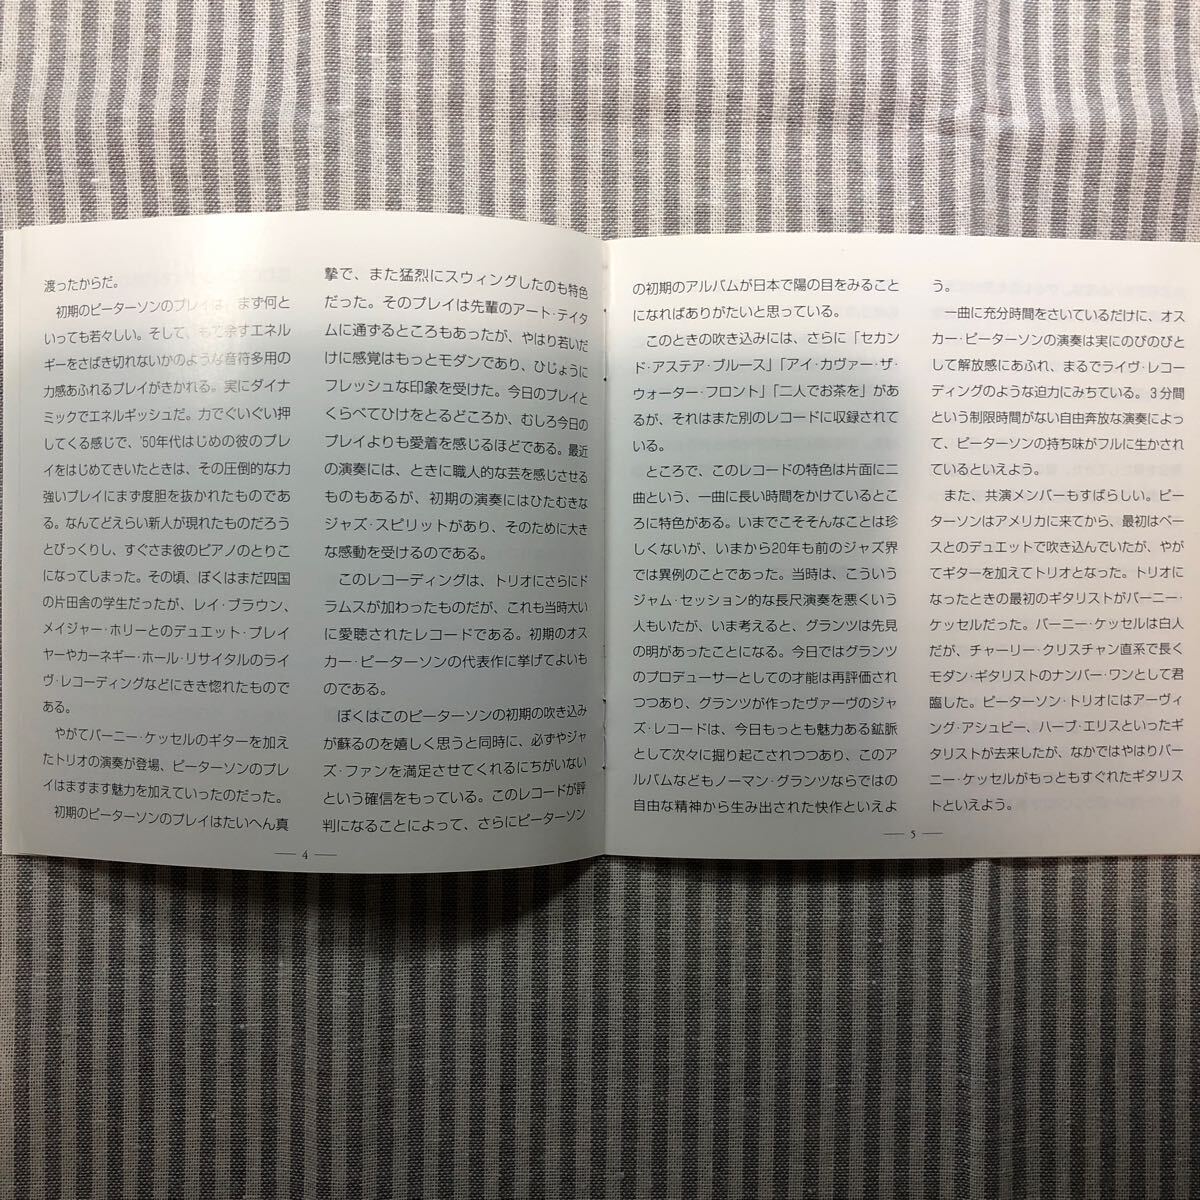 渡ったからだ。
　初期のピーターソンのプレイは、まず何と
いっても若々しい。そして、もて余すエネル
ギーをさばき切れないかのような音符多用の
力感あふれるプレイがきかれる。実にダイナ
ミックでエネルギッシュだ。力でぐいぐい押
してくる感じで、'50年代はじめの彼のプレ
イをはじめてきいたときは、その圧倒的な力
強いプレイにまず度胆を抜かれたものであ
る。なんてどえらい新人が現れたものだろう
とびっくりし、すぐさま彼のピアノのとりこ
になってしまった。その頃、ぼくはまだ四国
の片田舎の学生だったが、レイ・ブラウン、
メイジャー・ホリーとのデュエット・プレイ
ヤーやカーネギー・ホール・リサイタルのライ
ヴ・レコーディングなどにきき惚れたもので
ある。
　やがてバーニー・ケッセルのギターを加え
たトリオの演奏が登場、ピーターソンのプレ
イはますます魅力を加えていったのだった。
　初期のピーターソンのプレイはたいへん真
摯で、また猛烈にスウィングしたのも特色
だった。そのプレイは先輩のアート・テイタ
ムに通ずるところもあったが、やはり若いだ
けに感覚はもっとモダンであり、ひじょうに
フレッシュな印象を受けた。今日のプレイと
くらべてひけをとるどころか、むしろ今日の
プレイよりも愛着を感じるほどである。最近
の演奏には、ときに職人的な芸を感じさせる
ものもあるが、初期の演奏にはひたむきな
ジャズ・スピリットがあり、そのために大き
な感動を受けるのである。
　このレコーディングは、トリオにさらにド
ラムスが加わったものだが、これも当時大い
に愛聴されたレコードである。初期のオス
カー・ピーターソンの代表作に挙げてよいも
のである。
　ぼくはこのピーターソンの初期の吹き込み
が蘇るのを嬉しく思うと同時に、必ずやジャ
ズ・ファンを満足させてくれるにちがいない
という確信をもっている。このレコードが評
判になることによって、さらにピーターソン
— 4 —
の初期のアルバムが日本で陽の目をみること
になればありがたいと思っている。
　このときの吹き込みには、さらに「セカン
ド・アステア・ブルース」「アイ・カヴァー・ザ・
ウォーター・フロント」「二人でお茶を」があ
るが、それはまた別のレコードに収録されて
いる。
　ところで、このレコードの特色は片面に二
曲という、一曲に長い時間をかけているとこ
ろに特色がある。いまでこそそんなことは珍
しくないが、いまから20年も前のジャズ界
では異例のことであった。当時は、こういう
ジャム・セッション的な長尺演奏を悪くいう
人もいたが、いま考えると、グランツは先見
の明があったことになる。今日ではグランツ
のプロデューサーとしての才能は再評価され
つつあり、グランツが作ったヴァーヴのジャ
ズ・レコードは、今日もっとも魅力ある鉱脈
として次々に掘り起こされつつあり、このア
ルバムなどもノーマン・グランツならではの
自由な精神から生み出された快作といえよ
う。
　一曲に充分時間をさいているだけに、オス
カー・ピーターソンの演奏は実にのびのびと
して解放感にあふれ、まるでライヴ・レコー
ディングのような迫力にみちている。3分間
という制限時間がない自由奔放な演奏によっ
て、ピーターソンの持ち味がフルに生かされ
ているといえよう。
　また、共演メンバーもすばらしい。ピー
ターソンはアメリカに来てから、最初はベー
スとのデュエットで吹き込んでいたが、やが
てギターを加えてトリオとなった。トリオに
なったときの最初のギタリストがバーニー・
ケッセルだった。バーニー・ケッセルは白人
だが、チャーリー・クリスチャン直系で長く
モダン・ギタリストのナンバー・ワンとして君
臨した。ピーターソン・トリオにはアーヴィ
ング・アシュビー、ハーブ・エリスといったギ
タリストが去来したが、なかではやはりバー
ニー・ケッセルがもっともすぐれたギタリス
トといえよう。
— 5 —